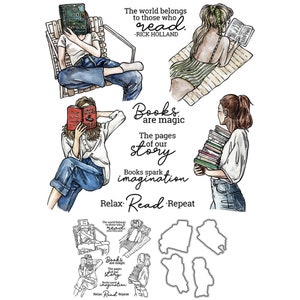 The world belongs
to those who
read.
-RICK HOLLAND
Books
are magic
The pages
of our
story
Books spark
imagination
Relax· Read ·Repeat
The world belongs
to those who
read.
Books
are magic
The pages
of our
story
Books spark
imagination
Relax· Read ·Repeat